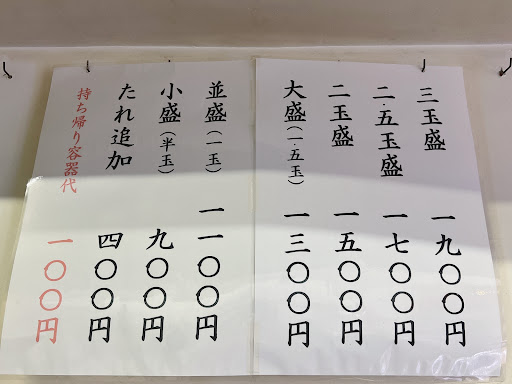 三玉盛 一九〇〇円
二・五玉盛 一七〇〇円
二玉盛 一五〇〇円
大盛(一・五玉) 一三〇〇円
並盛(一玉) 一一〇〇円
小盛(半玉) 九〇〇円
たれ追加 四〇〇円
持ち帰り容器代 一〇〇円